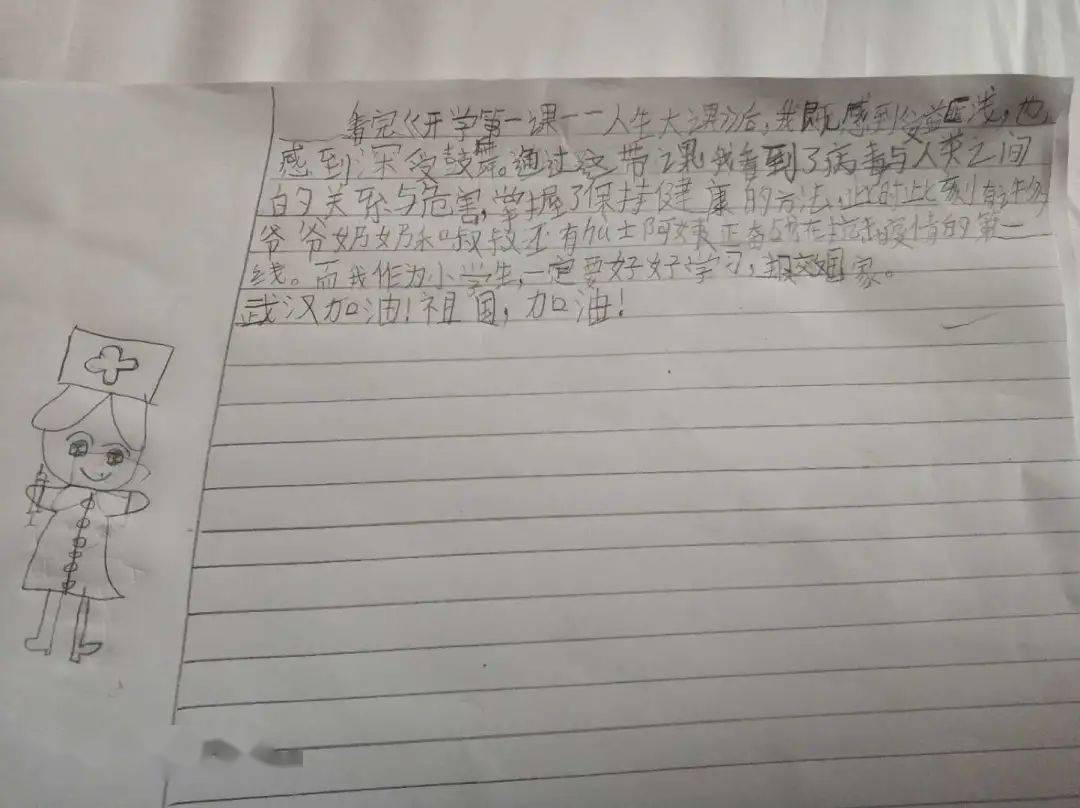 看完《开学第一课——人生大课》后,我既感到受益匪浅,也
感到深受鼓舞。通过这带课,我看到了病毒与人类之间
的关系与危害,掌握了保持健康的方法,此时此刻有许多
爷爷奶奶和叔叔还有加士阿姨正奋战在抗击疫情的第一
线。而我作为小学生,一定要好好学习,报交国家。
武汉加油!祖国,加油!